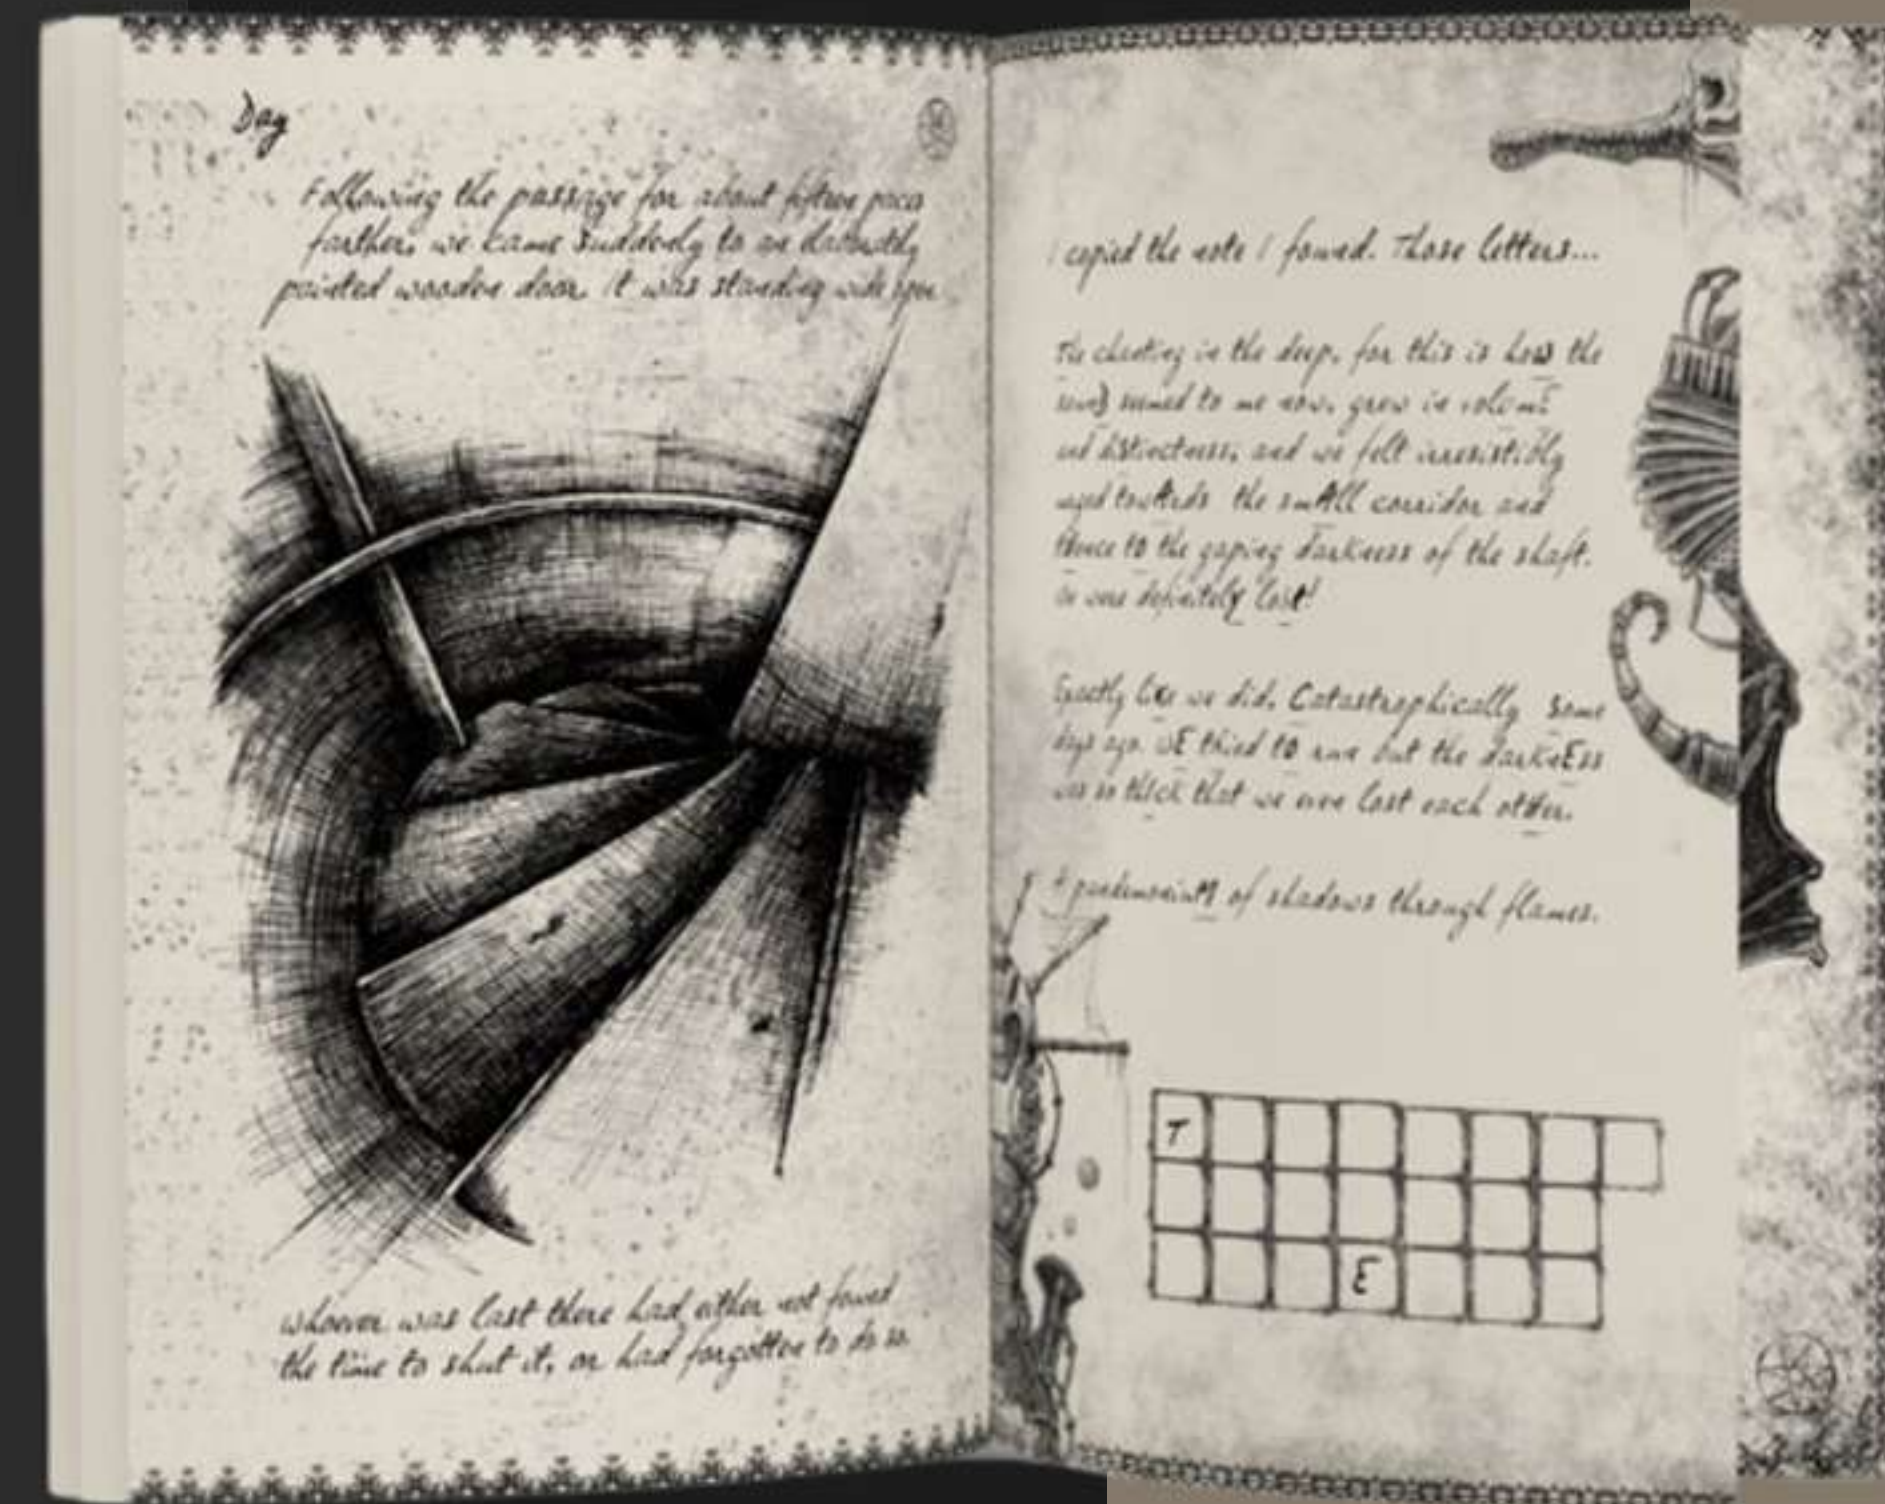 Day
Following the passage for about fifteen paces
farther, we came suddenly to an elaborately
painted wooden door. It was standing wide open
whoever was last there had either not found
the time to shut it, or had forgotten to do so.
I copied the note I found. Those letters...
The chanting in the deep, for this is how the
sound seemed to me now, grew in volumE
and distinctness, and we felt irresistibly
urged towArds the smAll corridor and
thence to the gaping darkness of the shaft.
definitely lost!
Exactly like we did. Catastrophically some
days ago. wE thied to run but the darknEss
was so thick that we even lost each other.
A of shadows through flames.
T
E